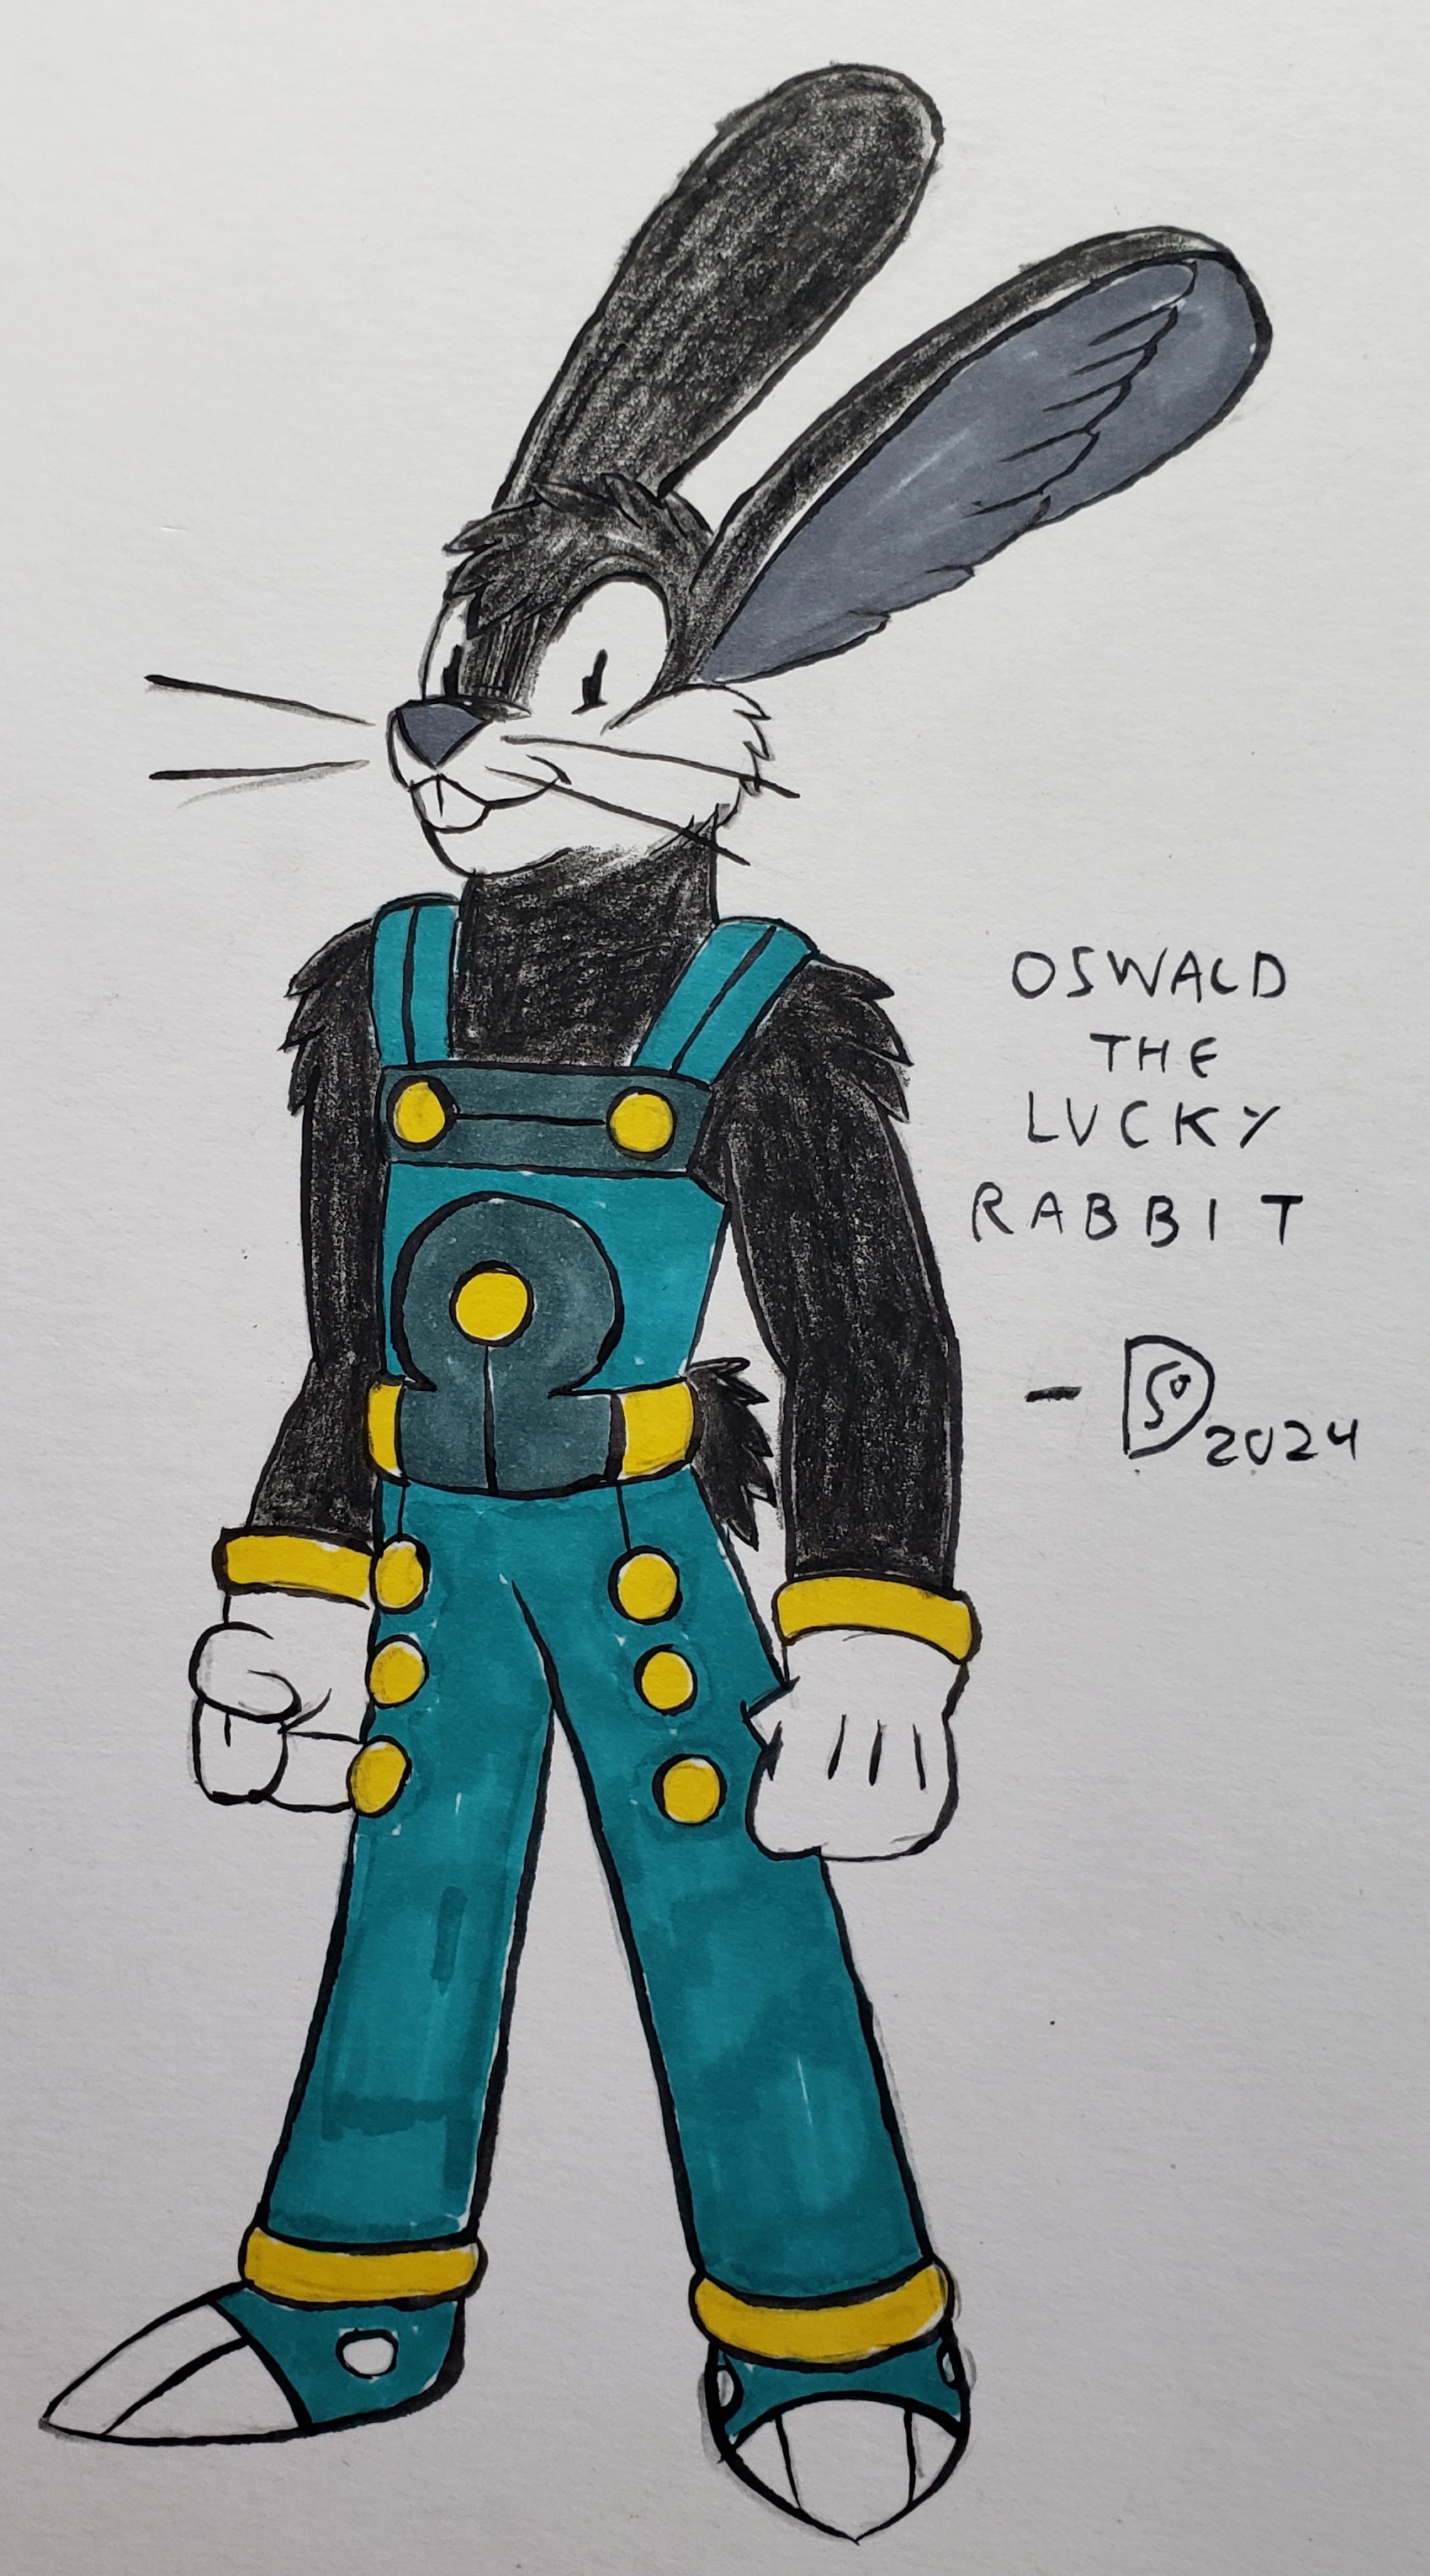 OSWALD
THE
LUCKY
RABBIT
- DSO 2024